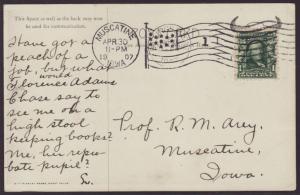 This Space as well as the back may now
be used for communication.
Have got a
peach of a
job, but what
would
Florence Adams
Chase say to
see me on a
high stool
keeping books?
Me, her repro-
bate pupil?
MUSCATINE
APR 30
11-PM
1907
IOWA
1
Prof. R. M. Arey.
Muscatine,
Iowa.